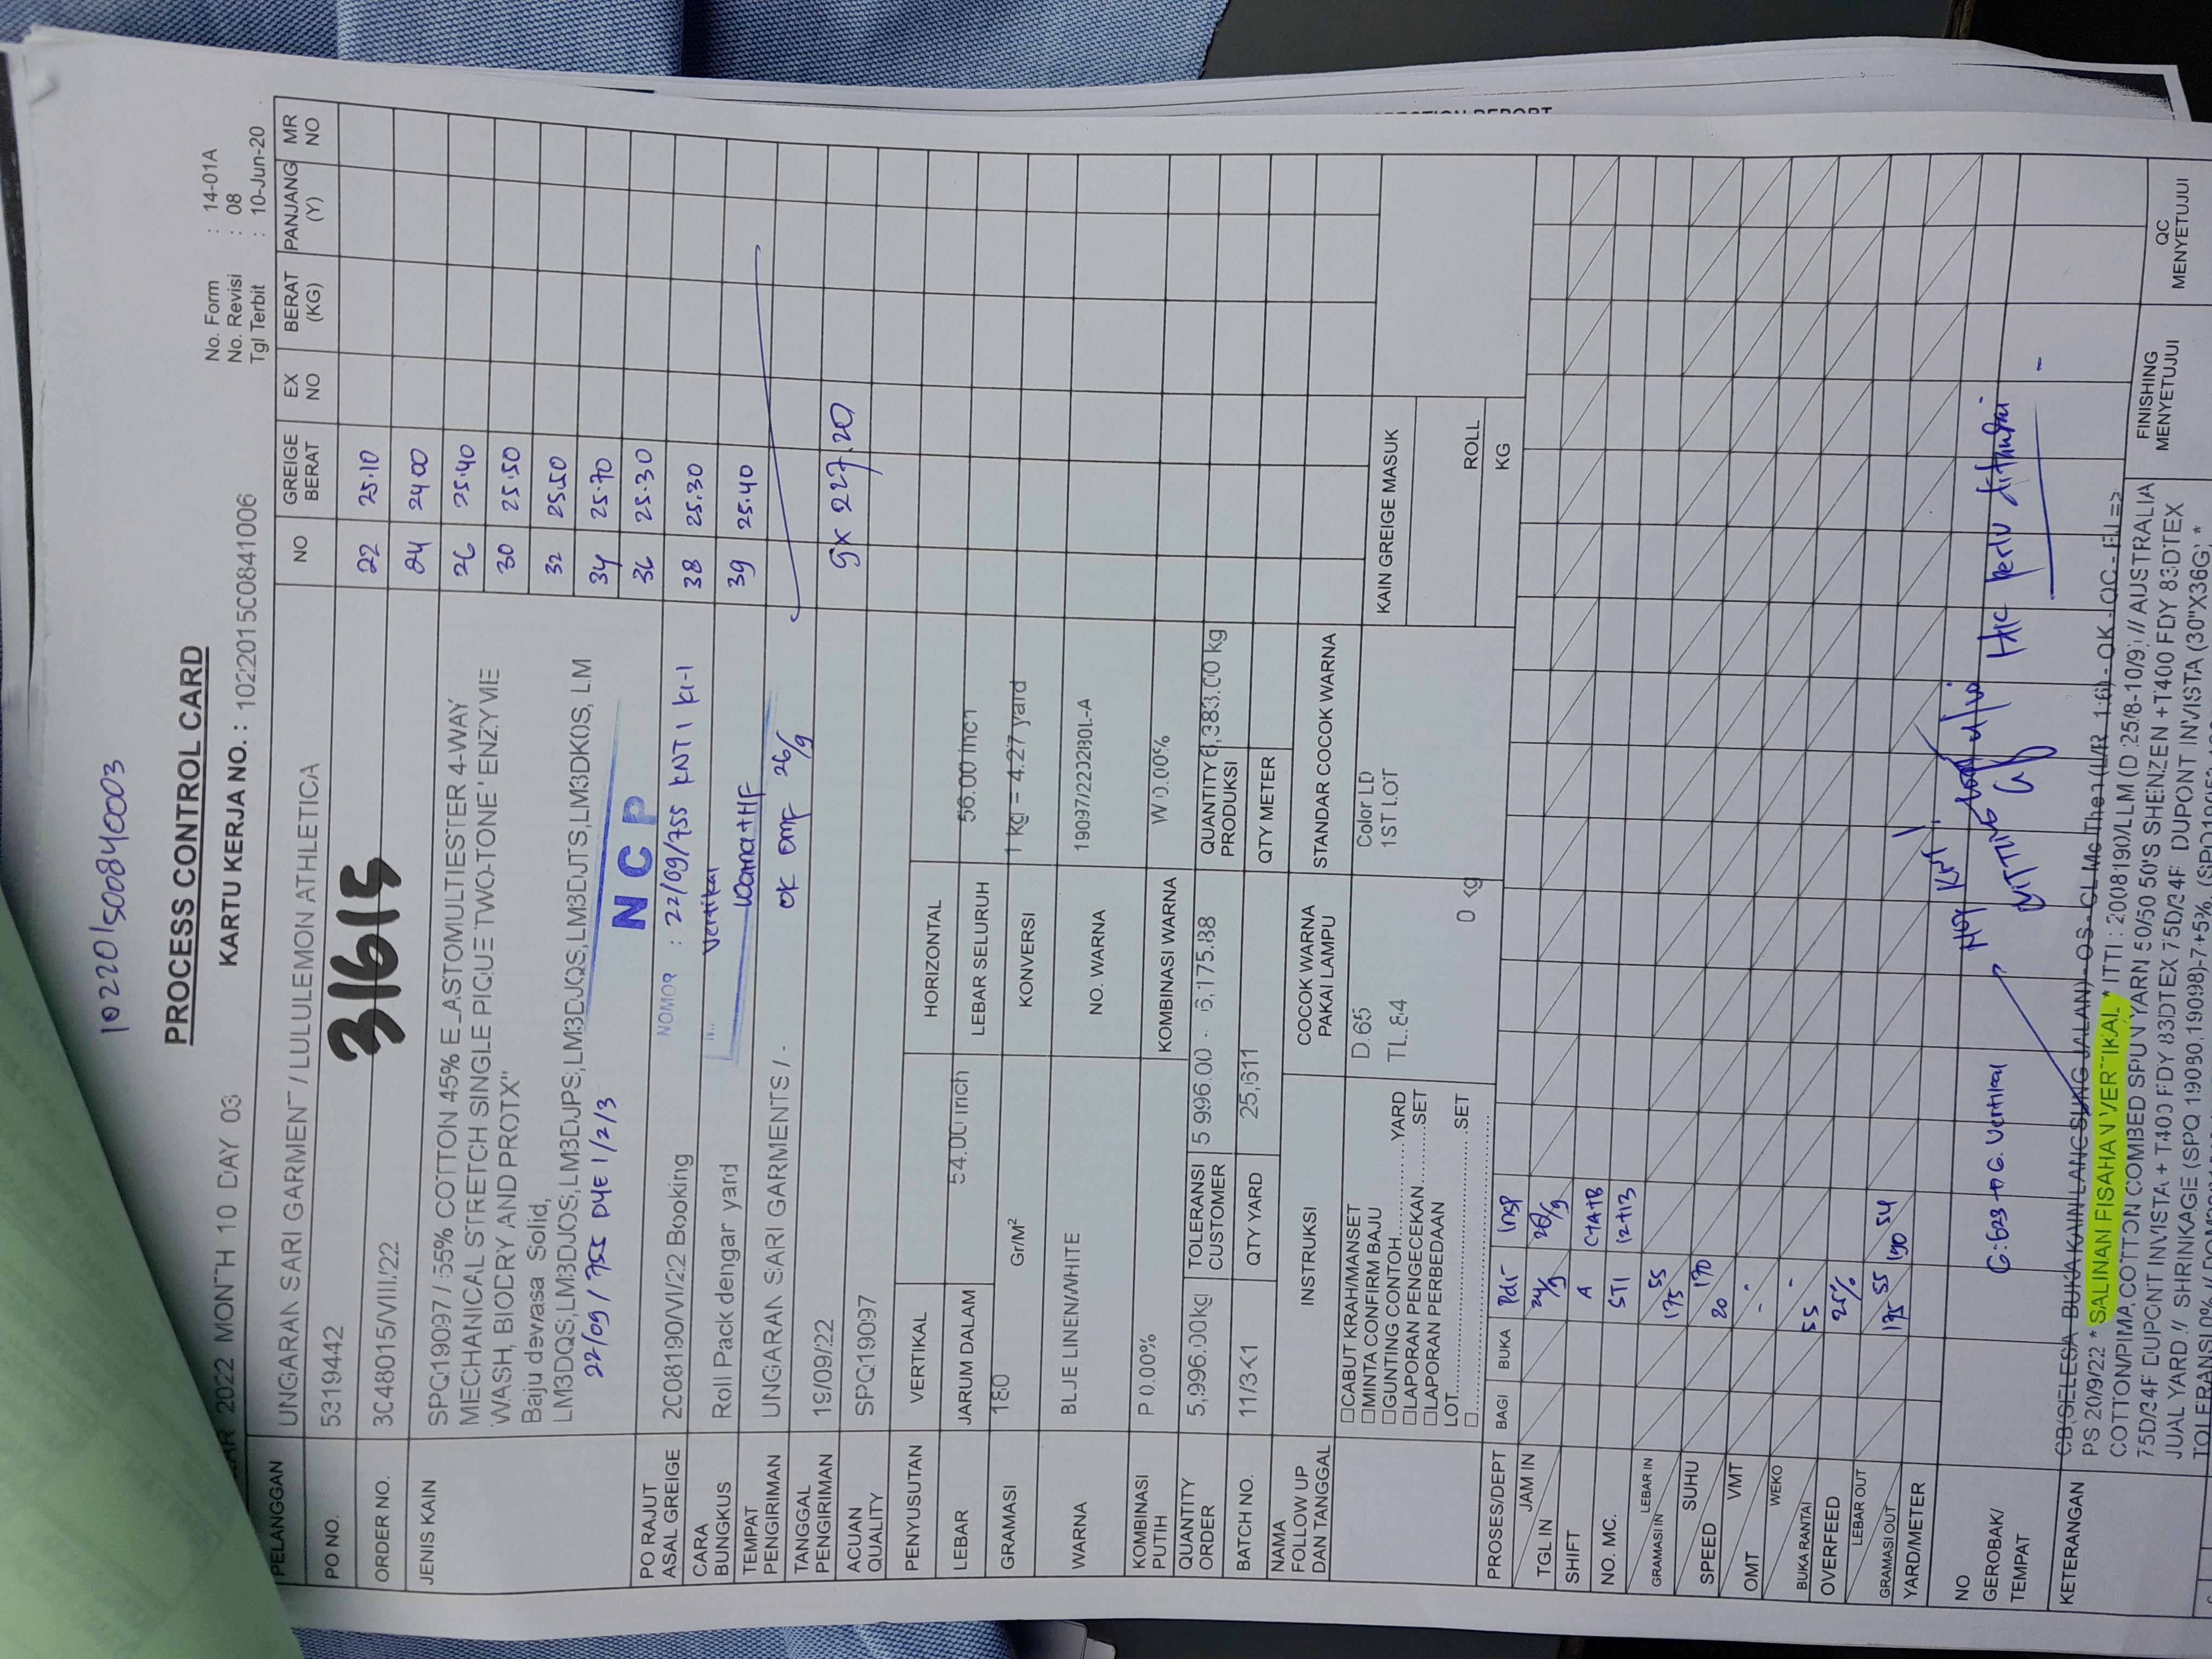 102201500840003
PROCESS CONTROL CARD
2022 MONTH 10 DAY 03
KARTU KERJA NO. : 1022015C0841006
No. Form : 14-01A
No. Revisi : 08
Tgl Terbit : 10-Jun-20
PELANGGAN UNGARAN SARI GARMENT / LULULEMON ATHLETICA
PO NO. 5319442
31615
ORDER NO. 3C48015/VIII/22
JENIS KAIN SPQ19097 / 55% COTTON 45% E_ASTOMULTIESTER 4-WAY
MECHANICAL STRETCH SINGLE PIQUE TWO-TONE ' ENZYME
WASH, BIODRY AND PROTX"
Baju dewasa Solid,
LM3DQS,LM3DJOS,LM3DJPS,LM3DJQS,LM3DJTS,LM3DKOS, LM
22/09/755 DYE 1/2/3
NCP
NOMOR : 22/09/755 KNT 1 K1-1
Vertikal
Warna+HF
OK OMF 26/9
PO RAJUT
ASAL GREIGE 2C08190/VI/22 Booking
CARA
BUNGKUS Roll Pack dengar yard
TEMPAT
PENGIRIMAN UNGARAN SARI GARMENTS / -
TANGGAL
PENGIRIMAN 19/09/22
ACUAN
QUALITY SPQ19097
NO GREIGE BERAT EX NO BERAT (KG) PANJANG (Y) MR NO
22 25.10
24 24.00
26 25.40
30 25.50
32 25.50
34 25.70
36 25.30
38 25.30
39 25.40
9x 227.20
PENYUSUTAN VERTIKAL HORIZONTAL
LEBAR JARUM DALAM 54.00 inch LEBAR SELURUH 56.00 inch
GRAMASI 180 Gr/M² KONVERSI 1 kg = 4.27 yard
WARNA BLUE LINEN/WHITE NO. WARNA 19097/220280L-A
KOMBINASI
PUTIH P 0.00% KOMBINASI WARNA W 0.00%
QUANTITY
ORDER 5,996.00kg TOLERANSI CUSTOMER 5 996.00 - 6,175.88 QUANTITY PRODUKSI 6,383.00 kg
BATCH NO. 11/3K1 QTY YARD 25,611 QTY METER
NAMA
FOLLOW UP
DAN TANGGAL
INSTRUKSI COCOK WARNA PAKAI LAMPU STANDAR COCOK WARNA
☐CABUT KRAH/MANSET
☐MINTA CONFIRM BAJU
☐GUNTING CONTOH..............YARD
☐LAPORAN PENGECEKAN..........SET
☐LAPORAN PERBEDAAN
LOT.................................................SET
☐..........................................
D.65
TL.84
0 kg
Color LD
1ST LOT
KAIN GREIGE MASUK
ROLL
KG
PROSES/DEPT BAGI BUKA Pdr Insp
JAM IN
TGL IN 24/9 26/9
SHIFT A C+A+B
NO. MC. ST1 12+13
LEBAR IN 55
GRAMASI IN 175
SUHU 170
SPEED 20
VMT -
OMT -
WEKO -
BUKA RANTAI 55
OVERFEED 25%
LEBAR OUT 55 54
GRAMASI OUT 175 190
YARD/METER
NO
GEROBAK/
TEMPAT
G:623 → G. Vertikal
KNT!
4/10
perlu
KETERANGAN CB(SELESA BUKA KAIN LANGSUNG JALAN) - OS - CL Mc Then (L/R 1:6) - OK - QC - FJ =>
PS 20/9/22 * SALINAN PISAHAN VERTIKAL * ITTI : 2008190/LLM (D 25/8-10/9) // AUSTRALIA
COTTON/PIMA COTTON COMBED SPUN YARN 50/50 50'S SHENZEN +T400 FDY 83DTEX
75D/34F DUPONT INVISTA + T400 FDY 83DTEX 75D/34F DUPONT INVISTA (30"X36G) *
JUAL YARD // SHRINKAGE (SPQ 19080,19098)-7+5%,
TOLERANSI 0%
FINISHING
MENYETUJUI
QC
MENYETUJUI